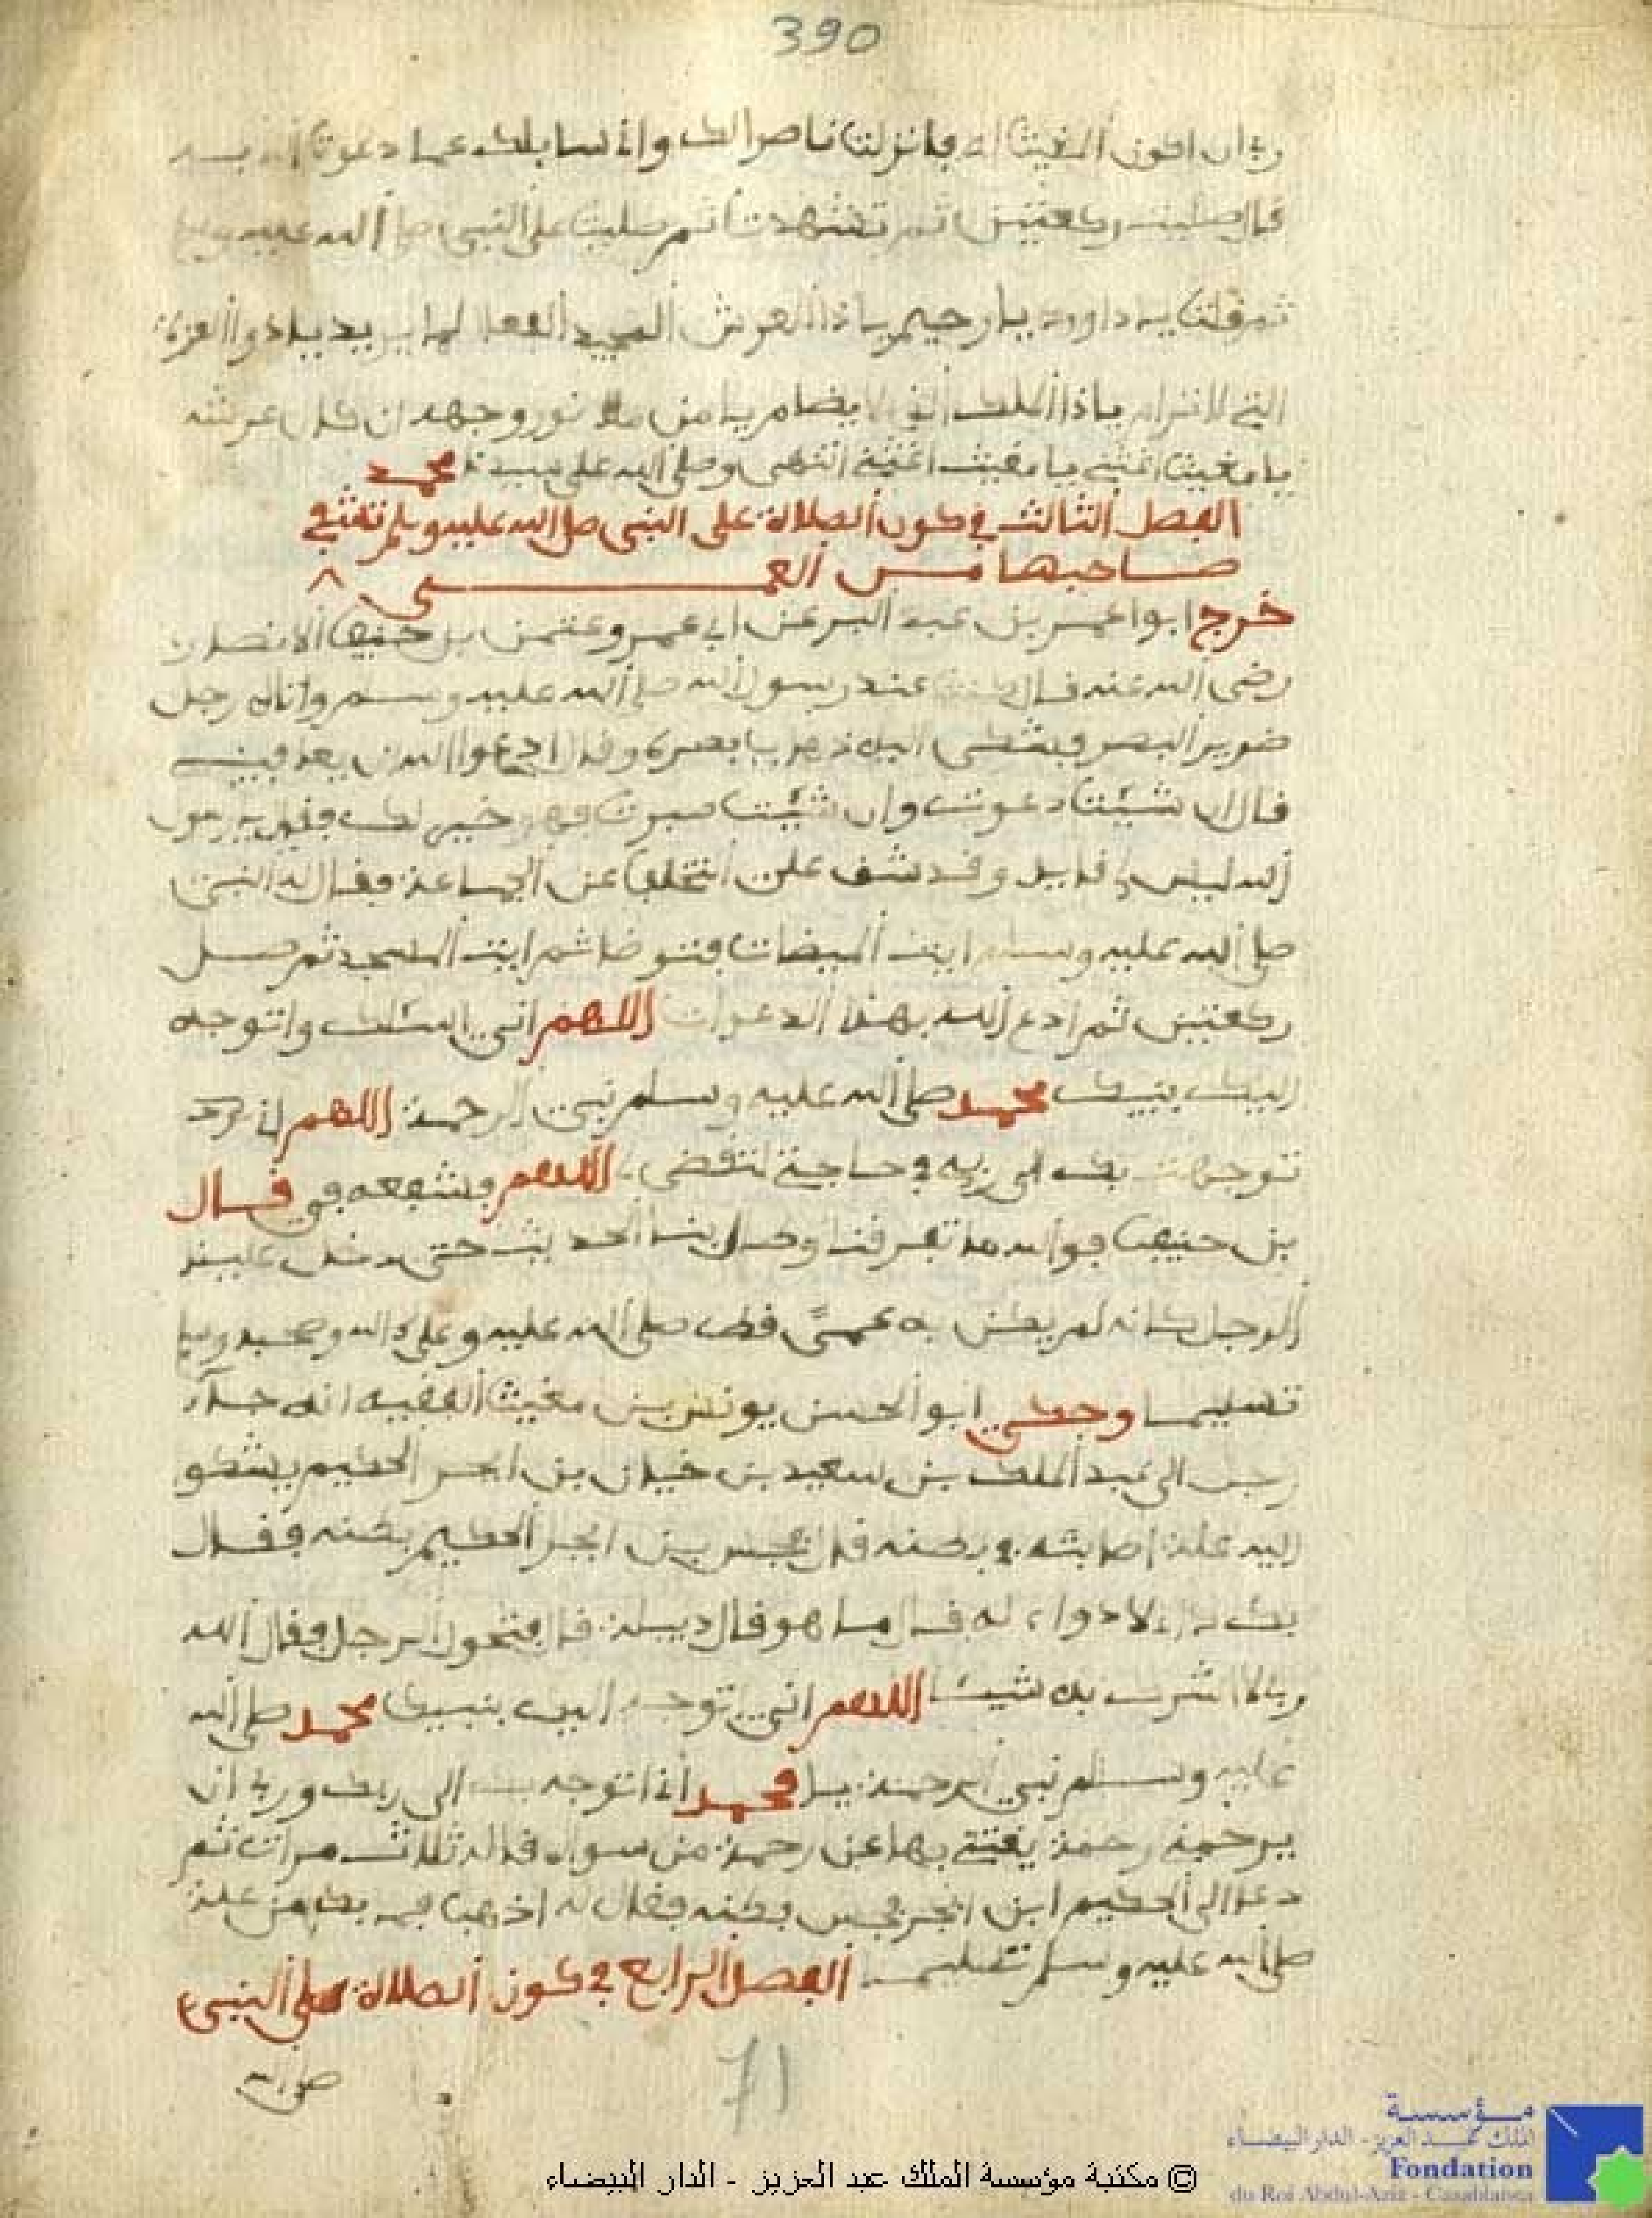 390
ربي ان اكون المغيث له فانزلت ناصرا لك وانا سايلك عما دعوت الله به
قال صليت ركعتين ثم تشهدت ثم صليت على النبي صلى الله عليه وسلم
ثم قلت يا داوود يا رحيم يا ذا العرش المجيد الفعال لما يريد يا ذوا العزة
التي لا ترام يا ذا الملك الذي لا يضام يا من ملا نور وجهه اركان عرشه
يا مغيث اغثني يا مغيث اغثني انتهى وصلى الله على سيدنا محمد
الفصل الثالث في كون الصلاة على النبي صلى الله عليه وسلم تشفي
صاحبها من العمى
خرج ابوا عمر بن عبد البر عن ابي عمرو عثمن بن حنيف الانصاري
رضي الله عنه قال كنت عند رسول الله صلى الله عليه وسلم واتاه رجل
ضرير البصر فشكى اليه ذهاب بصره وقال ادعوا الله ان يعافيني
قال ان شيت دعوت وان شيت صبرت فهو خير لك فقال يا رسول
الله ليس لي قايد وقد شق علي التخلف عن الجماعة فقال له النبي
صلى الله عليه وسلم ايت الميضات فتوضا ثم ايت المسجد ثم صل
ركعتين ثم ادع الله بهذا الدعوات اللهم اني اسئلك واتوجه
اليك بنبيك محمد صلى الله عليه وسلم نبي الرحمة اللهم اني
توجهت بك الى ربي في حاجتي لتقضى لي اللهم وشفعه في قال
بن حنيف فوالله ما تفرقنا وطال بنا الحديث حتى دخل علينا
الرجل كانه لم يكن به عمى قط صلى الله عليه وعلى ءاله وصحبه وسلم
تسليما وحكى ابو الحسن يونس بن مغيث الفقيه انه جاء
رجل الى عبد الملك بن سعيد بن خيان بن ابجر الحكيم يشكو
اليه علة اصابته في بطنه قال فجس بن ابجر الحكيم بطنه فقال
بك داء لا دواء له قال ما هو قال دبيلة قال فتحول الرجل فقال الله
ربي لا اشرك به شيئا اللهم اني اتوجه اليك بنبيك محمد صلى الله
عليه وسلم نبي الرحمة يا محمد انا اتوجه بك الى ربك وربي ان
يرحمني رحمة يغنني بها عن رحمة من سواه قاله ثلاث مرات ثم
دعا الى الحكيم ابن ابجر فجس بطنه فقال له اذهب فما بك من علة
صلى الله عليه وسلم تسليما الفصل الرابع في كون الصلاة على النبي
صلى الله
71
© مكتبة مؤسسة الملك عبد العزيز - الدار البيضاء
مؤسسة
الملك عبد العزيز - الدار البيضاء
Fondation
du Roi Abdul-Aziz - Casablanca